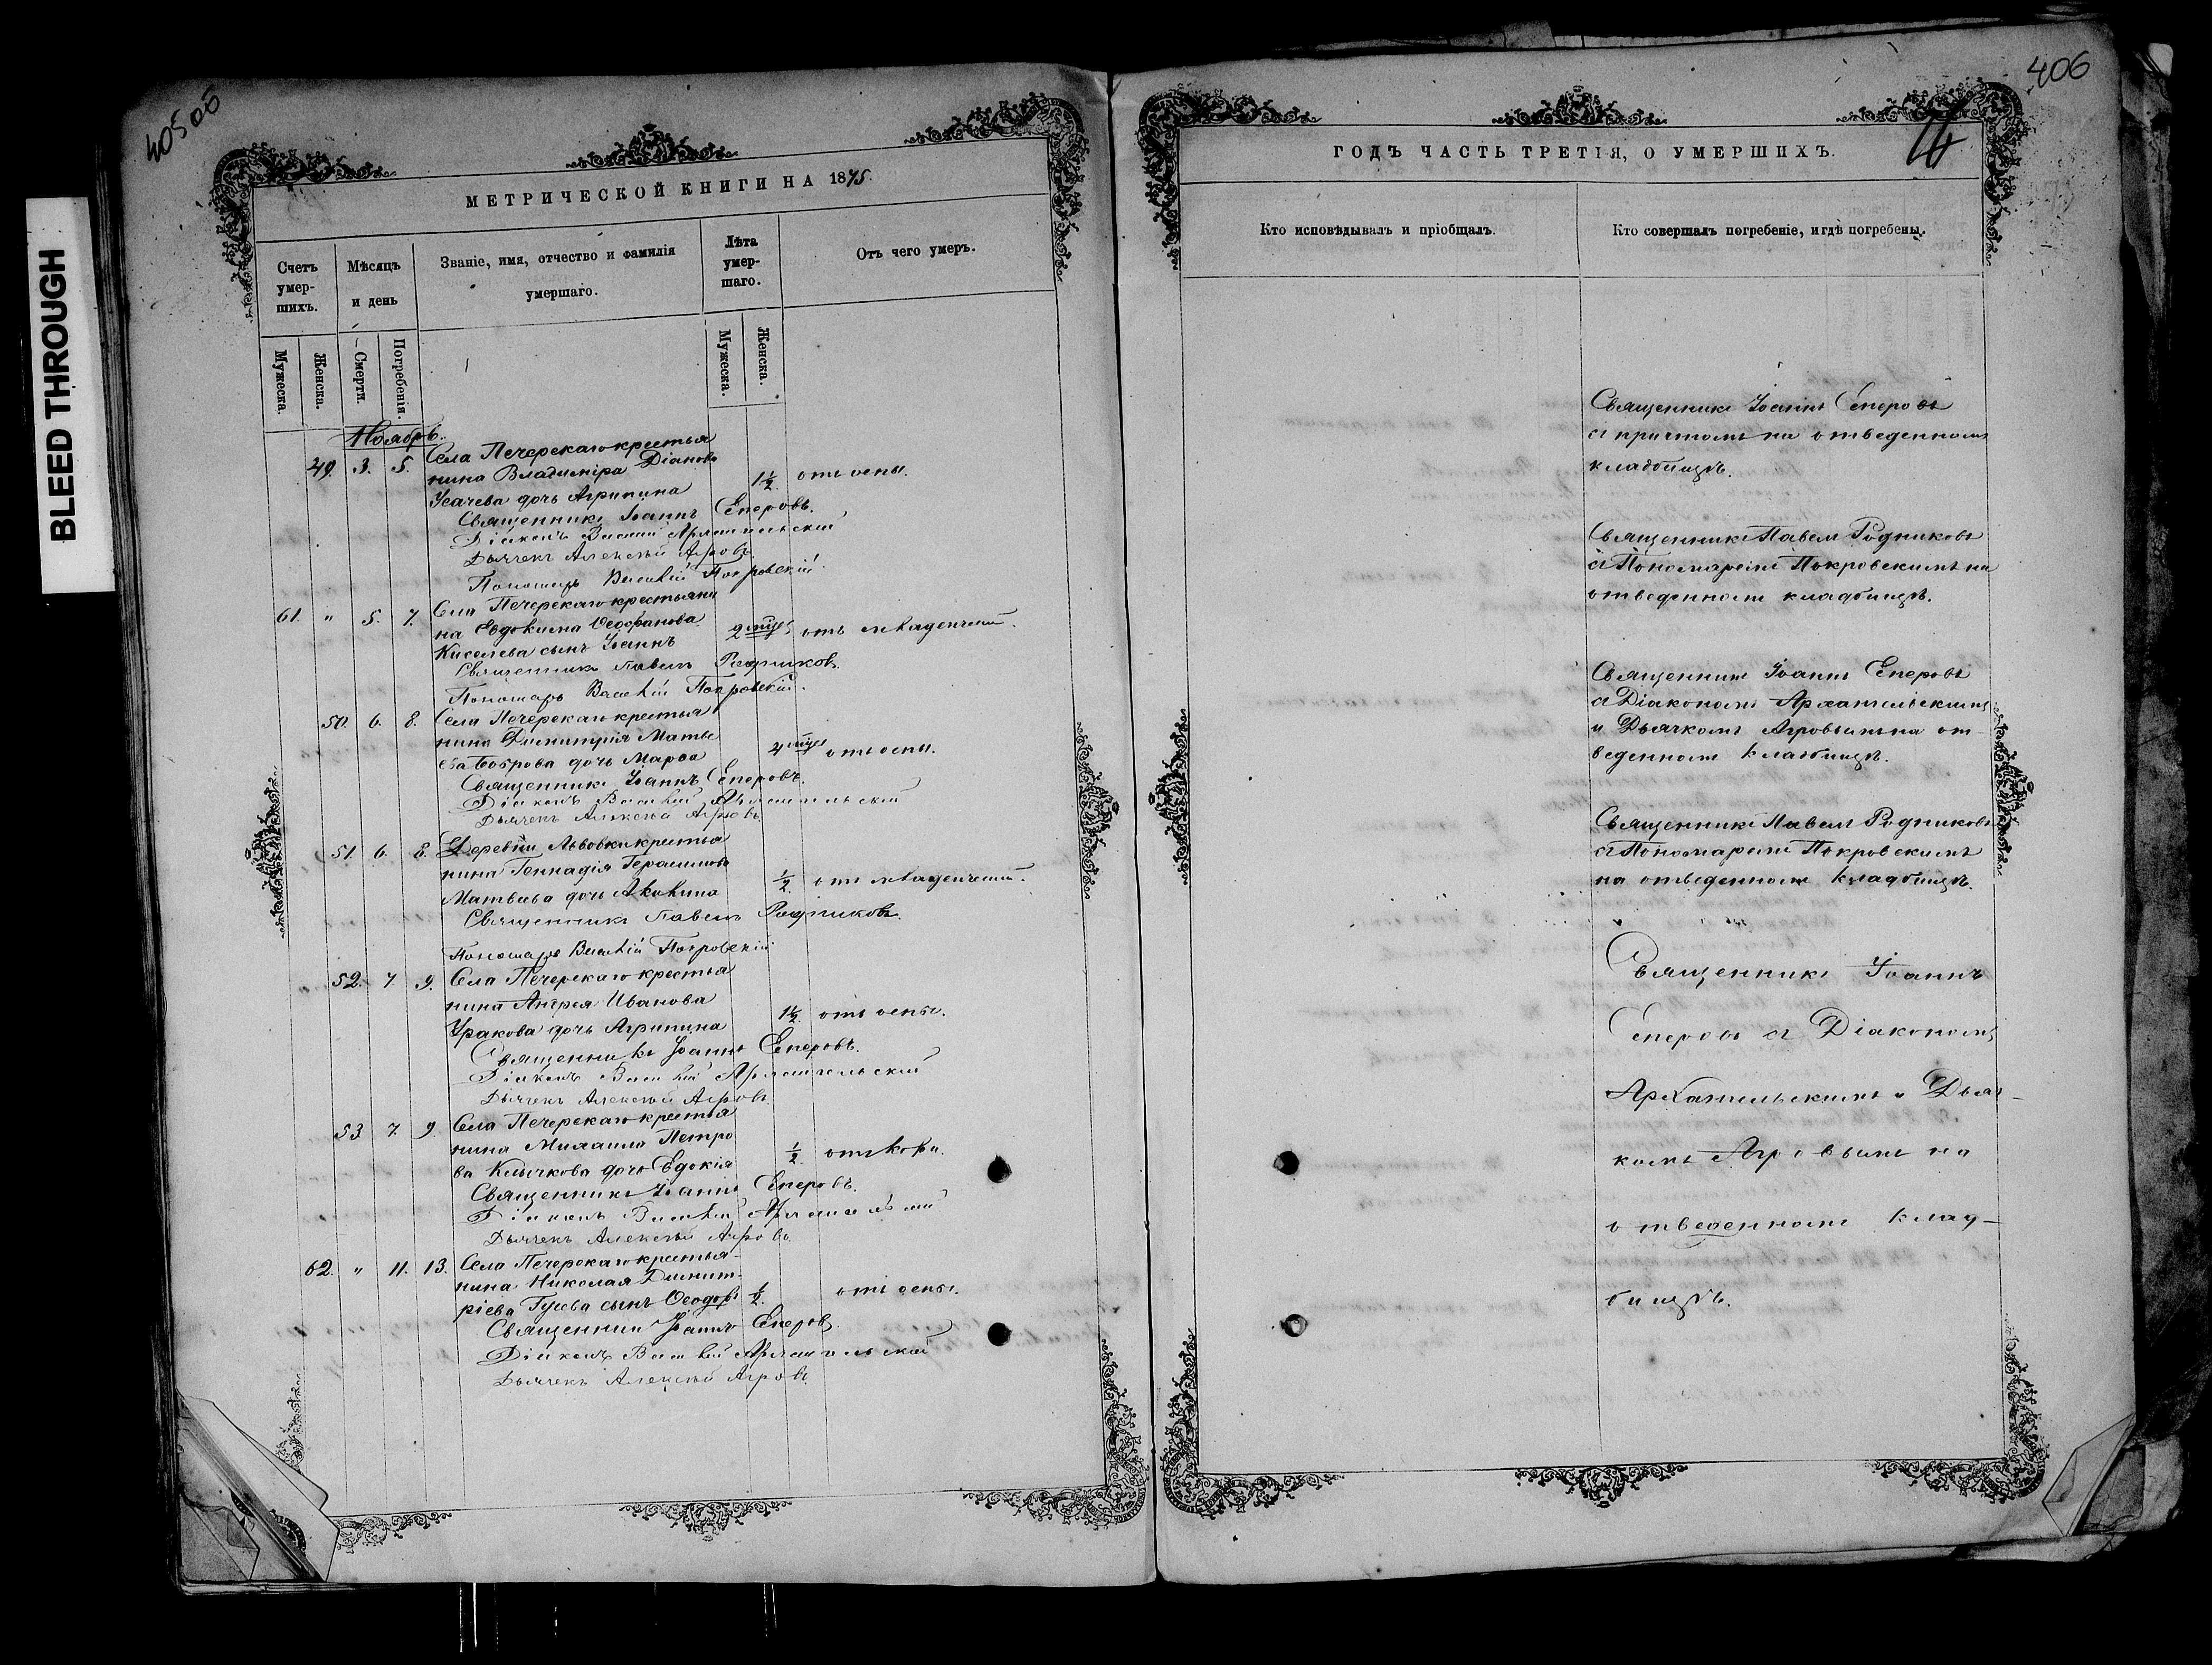 BLEED THROUGH
405 об
МЕТРИЧЕСКОЙ КНИГИ НА 1875.
Счетъ умер-шихъ.
Мѣсяцъ и день
Званіе, имя, отчество и фамилія умершаго.
Лѣта умер-шаго.
Отъ чего умеръ.
Мужеска.
Женска.
Смерти.
Погребенія.
Мужеска.
Женска.
Ноябрь.
Села Печерскаго крестья
49. 3. 5. нина Владиміра Діанова 1½ отъ оспы.
Усачева дочь Агрипина
Священникъ Іоаннъ Еперовъ.
Діаконъ Василій Архангельскій
Дьячекъ Алексѣй Агровъ
Пономарь Василій Покровскій
61. " 5. 7. Села Печерскаго крестьяни
на Евдокима Ѳеофанова 2 мцы отъ младенчест.
Киселева сынъ Іоаннъ
Священникъ Павелъ Родниковъ.
Пономарь Василій Покровскій.
50. 6. 8. Села Печерскаго крестья
нина Димитрія Матвѣ 4 мцы отъ оспы.
ева Боброва дочь Марѳа
Священникъ Іоаннъ Еперовъ.
Діаконъ Василій Архангельскій
Дьячекъ Алексѣй Агровъ
51. 6. 8. Деревни Львовки крестья
нина Геннадія Герасимова ½ отъ младенчест.
Матвѣева дочь Акилина
Священникъ Павелъ Родниковъ.
Пономарь Василій Покровскій
52. 7. 9. Села Печерскаго крестья
нина Андрея Иванова 1½ отъ оспы.
Уракова дочь Агрипина
Священникъ Іоаннъ Еперовъ.
Діаконъ Василій Архангельскій
Дьячекъ Алексѣй Агровъ
53. 7. 9. Села Печерскаго крестья
нина Михаила Петро ½ отъ кори.
ва Клычкова дочь Евдокія
Священникъ Іоаннъ Еперовъ.
Діаконъ Василій Архангельскій
Дьячекъ Алексѣй Агровъ
62. " 11. 13. Села Печерскаго крестья-
нина Николая Димит- отъ оспы.
ріева Гусева сынъ Ѳеодоръ ½.
Священникъ Іоаннъ Еперовъ
Діаконъ Василій Архангельскій
Дьячекъ Алексѣй Агровъ
406
ГОДЪ ЧАСТЬ ТРЕТІЯ, О УМЕРШИХЪ.
Кто исповѣдывалъ и пріобщалъ.
Кто совершалъ погребеніе, и гдѣ погребены.
Священникъ Іоаннъ Еперовъ
съ причтомъ на отведенномъ
кладбищѣ.
Священникъ Павелъ Родниковъ
съ Пономаремъ Покровскимъ на
отведенномъ кладбищѣ.
Священникъ Іоаннъ Еперовъ
съ Діакономъ Архангельскимъ
и Дьячкомъ Агровымъ на от-
веденномъ кладбищѣ.
Священникъ Павелъ Родниковъ
съ Пономаремъ Покровскимъ
на отведенномъ кладбищѣ.
Священникъ Іоаннъ
Еперовъ съ Діакономъ
Архангельскимъ и Дьяч-
комъ Агровымъ на
отведенномъ клад-
бищѣ.